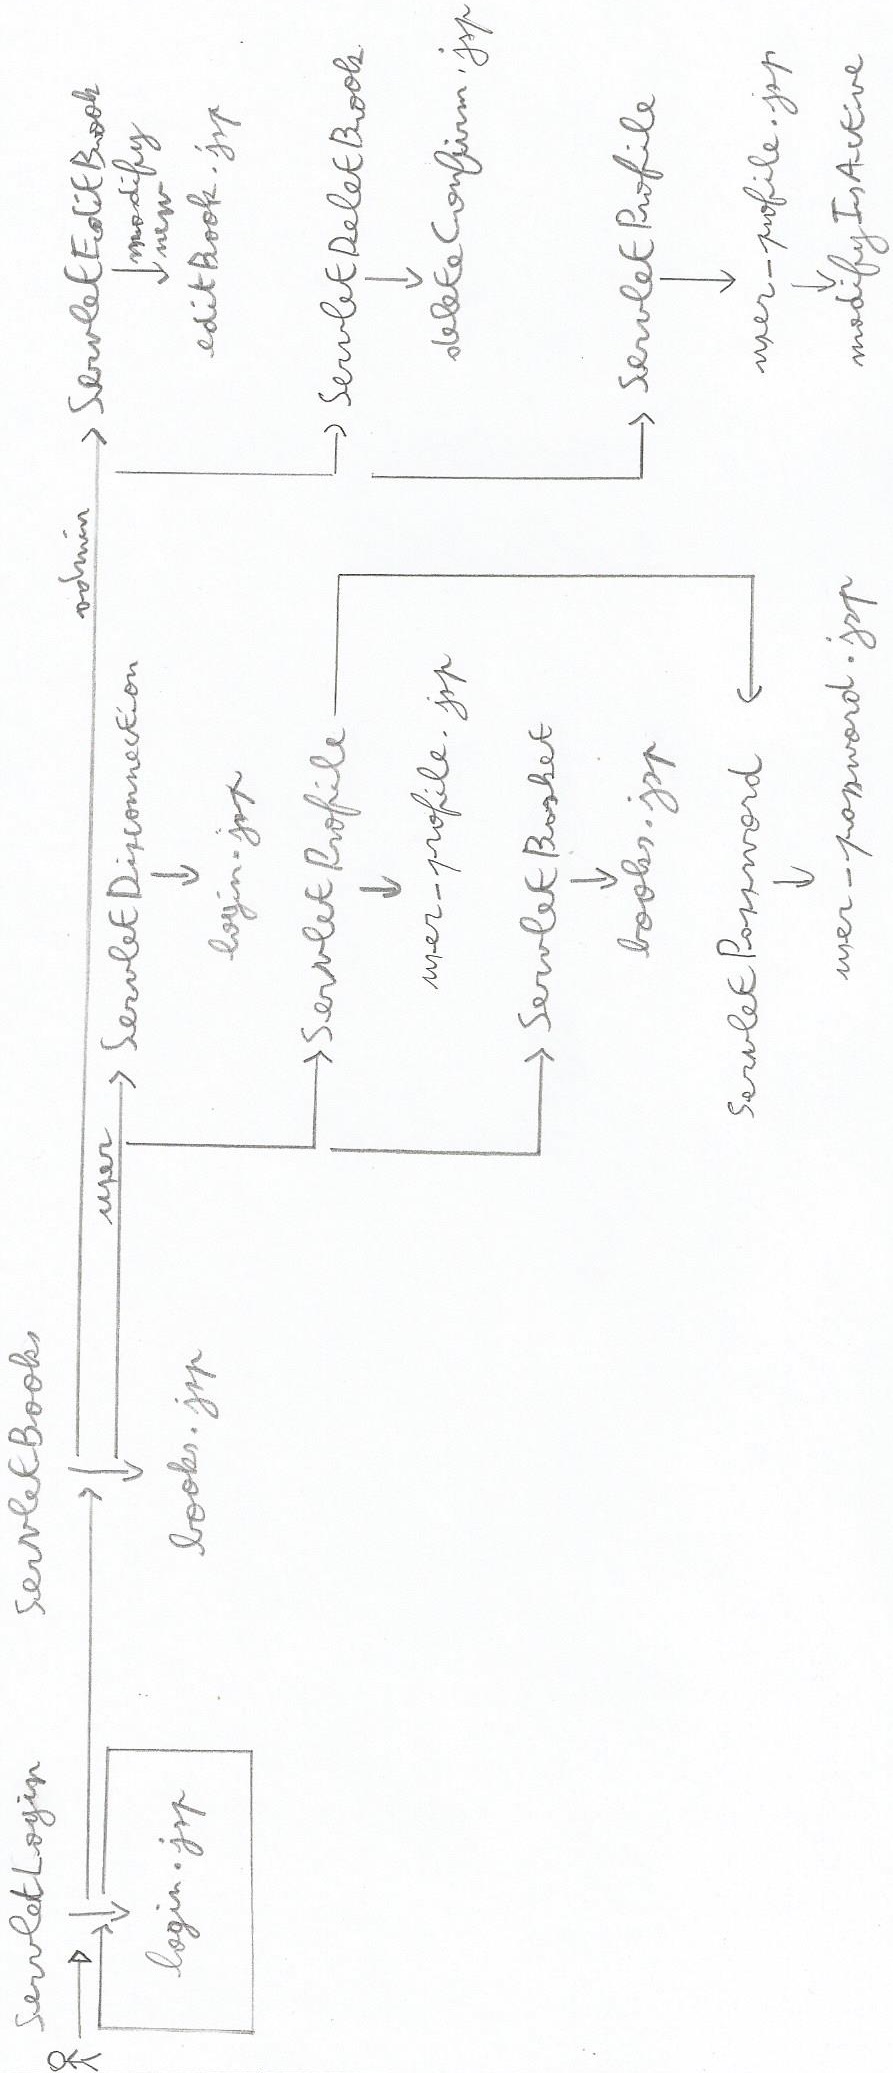 ServletLogin
login.jsp
ServletBooks
books.jsp
user
admin
ServletDisconnection
login.jsp
ServletProfile
user-profile.jsp
ServletBasket
books.jsp
ServletPassword
user-password.jsp
ServletEditBook
modify
new
editBook.jsp
ServletDeletBook
deleteConfirm.jsp
ServletProfile
user-profile.jsp
modifyIsActive